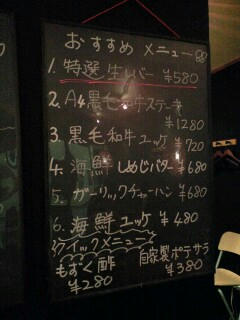 おすすめ メニュー
1. 特選 生レバー ¥580
2. A4黒毛和牛ステーキ
¥1280
3. 黒毛和牛ユッケ ¥720
4. 海鮮しめじバター ¥680
5. ガーリックチャーハン ¥680
6. 海鮮ユッケ ¥480
クイックメニュー
もずく酢
¥280
自家製ポテサラ
¥380